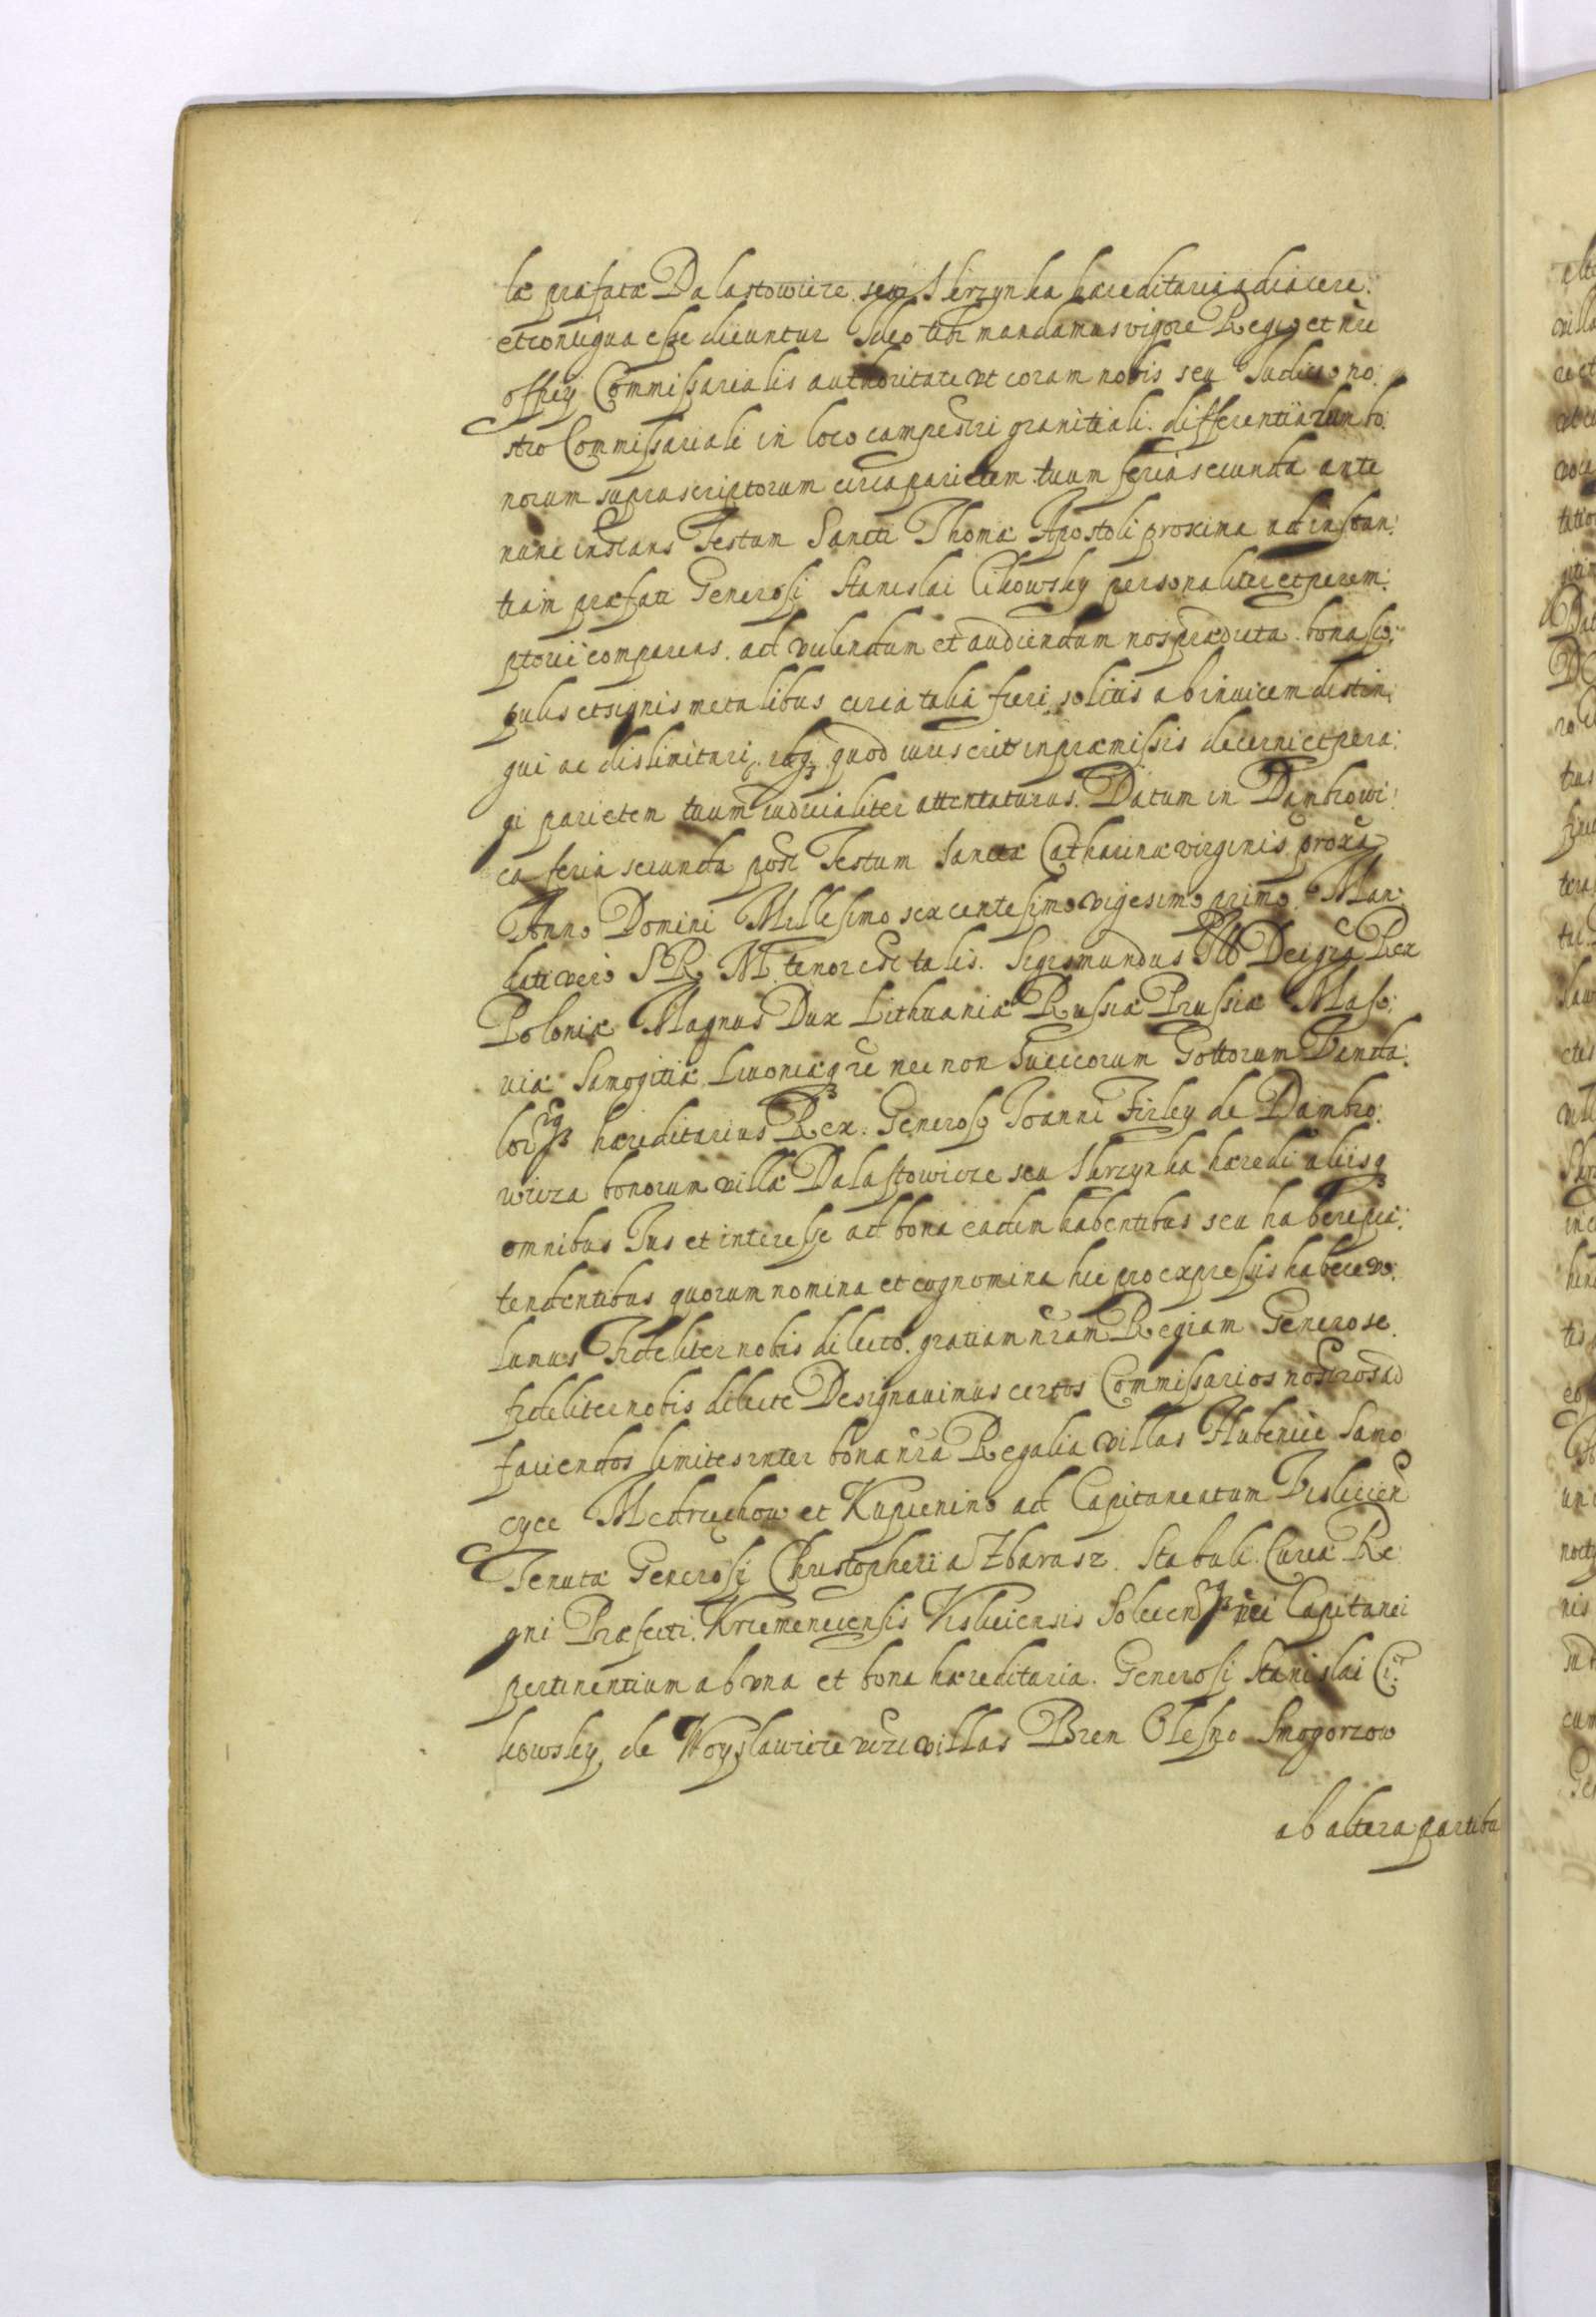 læ præfatæ Dalastowicze seu Skrzynka hæreditaria adiacere
et contigua esse dicuntur Ideo tibi mandamus vigore Regio et nre
officij Commissarialis authoritate vt coram nobis seu Iudicio no:
stro Commissariali in loco campestri granitiali differentiarum bo:
norum suprascriptorum circa parietem tuum feria secunda ante
nunc instans Festum Sancti Thomæ Apostoli proxima ad instan:
tiam præfati Generosi Stanislai Cikowsky personaliter et perem:
ptorie compareas. ad videndum et audiendum nos prædicta bona sco:
pulis et signis metalibus circa talia fieri solitis ab inuicem distin:
gui ac dislimitari, idqȝ quod iuris erit in præmissis decerni et pera:
gi parietem tuum iudicialiter attentaturus. Datum in Dambrowi:
ca feria secunda post Festum Sanctæ Catharinæ virginis proxa
Anno Domini Millesimo sexcentesimo vigesimo primo. Man:
dati vero S R M tenor est talis. Sigismundus III Dei gra Rex
Poloniæ Magnus Dux Lithuaniæ Russiæ Prussiæ Maso:
uiæ Samogitiæ Liuoniæqȝ nec non Suecorum Gottorum Vanda:
lorqȝ hæreditarius Rex. Generoso Ioanni Firley de Dambro:
wicza bonorum villæ Dalastowicze seu Skrzynka hæredi alijsqȝ
omnibus Ius et interesse ad bona eadem habentibus seu habere præ:
tendentibus quorum nomina et cognomina hic pro expressis habere vo:
lumus Fideliter nobis dilecto. gratiam nram Regiam Generose
fideliter nobis dilecte Designauimus certos Commissarios nostros ad
faciendos limites inter bona nra Regalia villas Hubenice Samo
cyce Medrzechow et Kupienino ad Capitaneatum Vislicien
Tenutæ Generosi Christopheri a Zbarasz. Stabuli Curiæ Re
gni Præfecti. Krzemenecensis Visliciensis Solecen qȝ nri Capitanei
pertinentium ab vna et bona hæreditaria. Generosi Stanislai Ci:
kowsky de Woyslawicze villas Bren Olesno Smogorzow
ab altera partibu